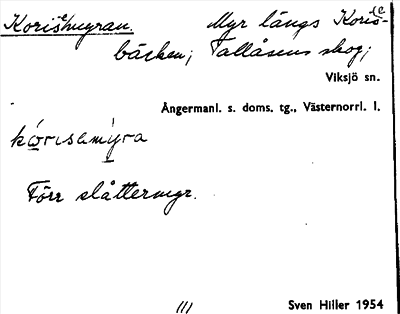 Korisemyran. Myr längs Korise-
bäcken; Tallåsens skog;
Viksjö sn.
Ångermanl. s. doms. tg., Västernorrl. l.
kórisemỳra
Förr slåttermyr.
Sven Hiller 1954